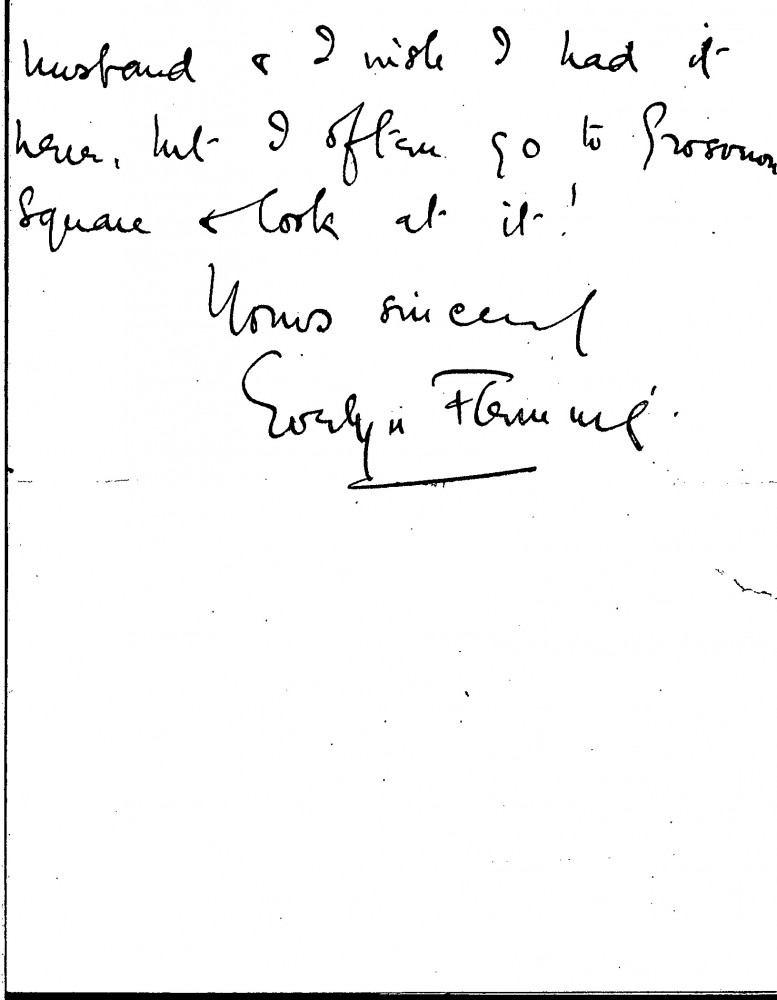 husband & I wish I had it
here, but I often go to Grosvenor
Square & look at it!
Yours sincerely
Evelyn Fleming.